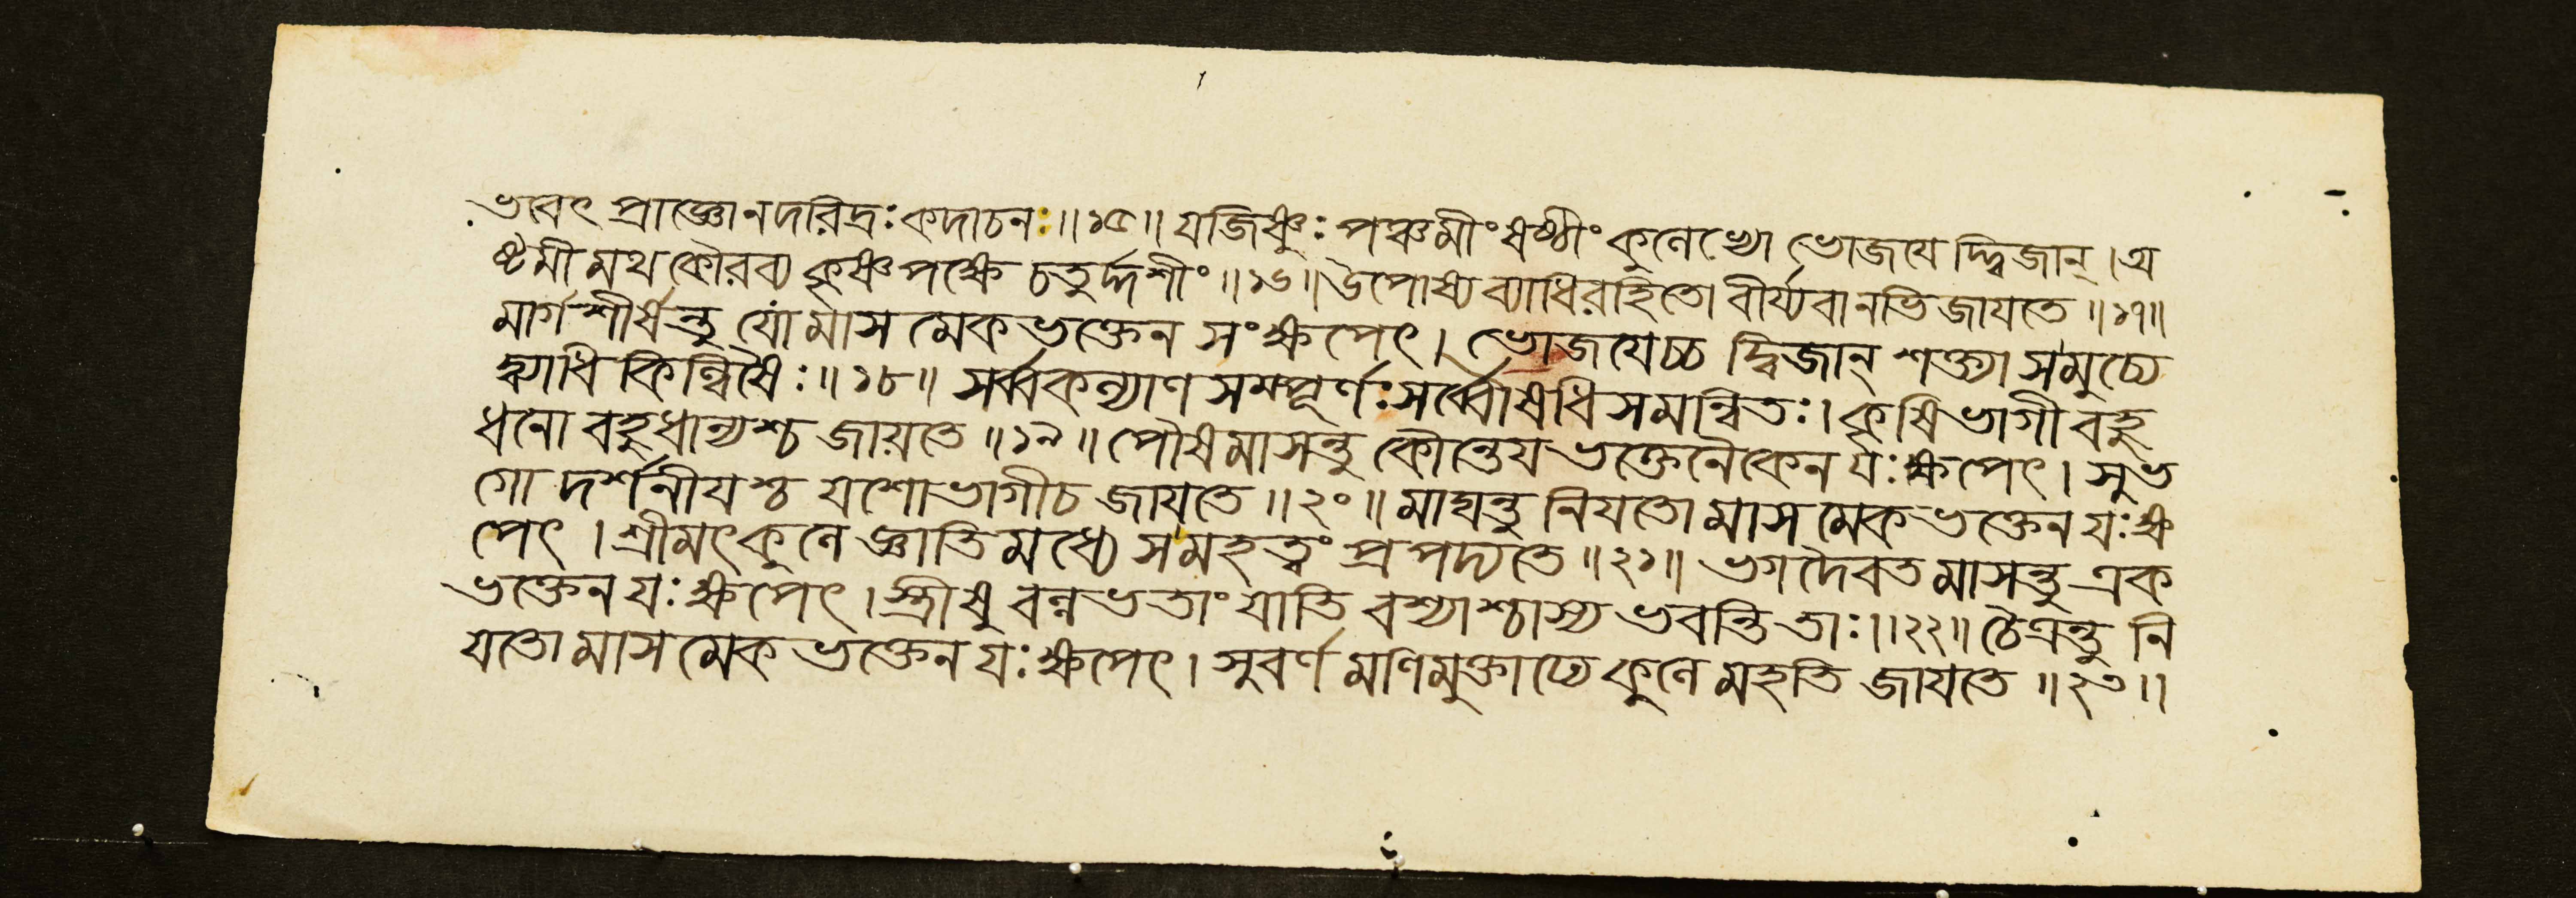 ভবেৎ প্রাজ্ঞোনদরিদ্রঃকদাচনঃ॥১৫॥যজিষ্ণুঃপঞ্চমীংষষ্ঠীংকুনেখো ভোজযেদ্দ্বিজান্।অ
ষ্টমীমথকৌরব্য কৃষ্ণপক্ষে চতুর্দ্দশীং॥১৬॥উপোষ্য ব্যাধিরহিতো বীর্য্যবানভিজাযতে॥১৭॥
মার্গশীর্ষন্তু যোমাস মেকভক্তেন সংক্ষপেৎ। ভোজযেচ্চ দ্বিজান্ শক্ত্যা সমুচ্যে
দ্ব্যাধিকিল্বিষৈঃ॥১৮॥ সর্ব্বকল্যাণসমম্পূর্ণঃসর্ব্বৌষধিসমন্বিতঃ।কৃষিভাগী বহু
ধনো বহুধান্যশ্চ জায়তে॥১৯॥পৌষমাসন্তু কৌন্তেয ভক্তেনৈকেন যঃক্ষপেৎ। সুভ
গো দর্শনীযশ্চ যশোভাগীচ জাযতে॥২০॥মাঘন্তু নিযতোমাস মেকভক্তেন যঃক্ষ
পেৎ।শ্রীমৎকুনে জ্ঞাতিমধ্যে সমহত্বং প্রপদ্যতে॥২১॥ ভগদৈবতমাসন্তু এক
ভক্তেনযঃক্ষপেৎ।স্ত্রীষু বল্লভতাং যাতি বশ্যাশ্চাস্য ভবন্তিতাঃ॥২২॥চৈত্রন্তু নি
যতোমাস মেকভক্তেনযঃক্ষপেৎ। সুবর্ণমণিমুক্তাঢ্যে কুনে মহতি জাযতে॥২৩॥